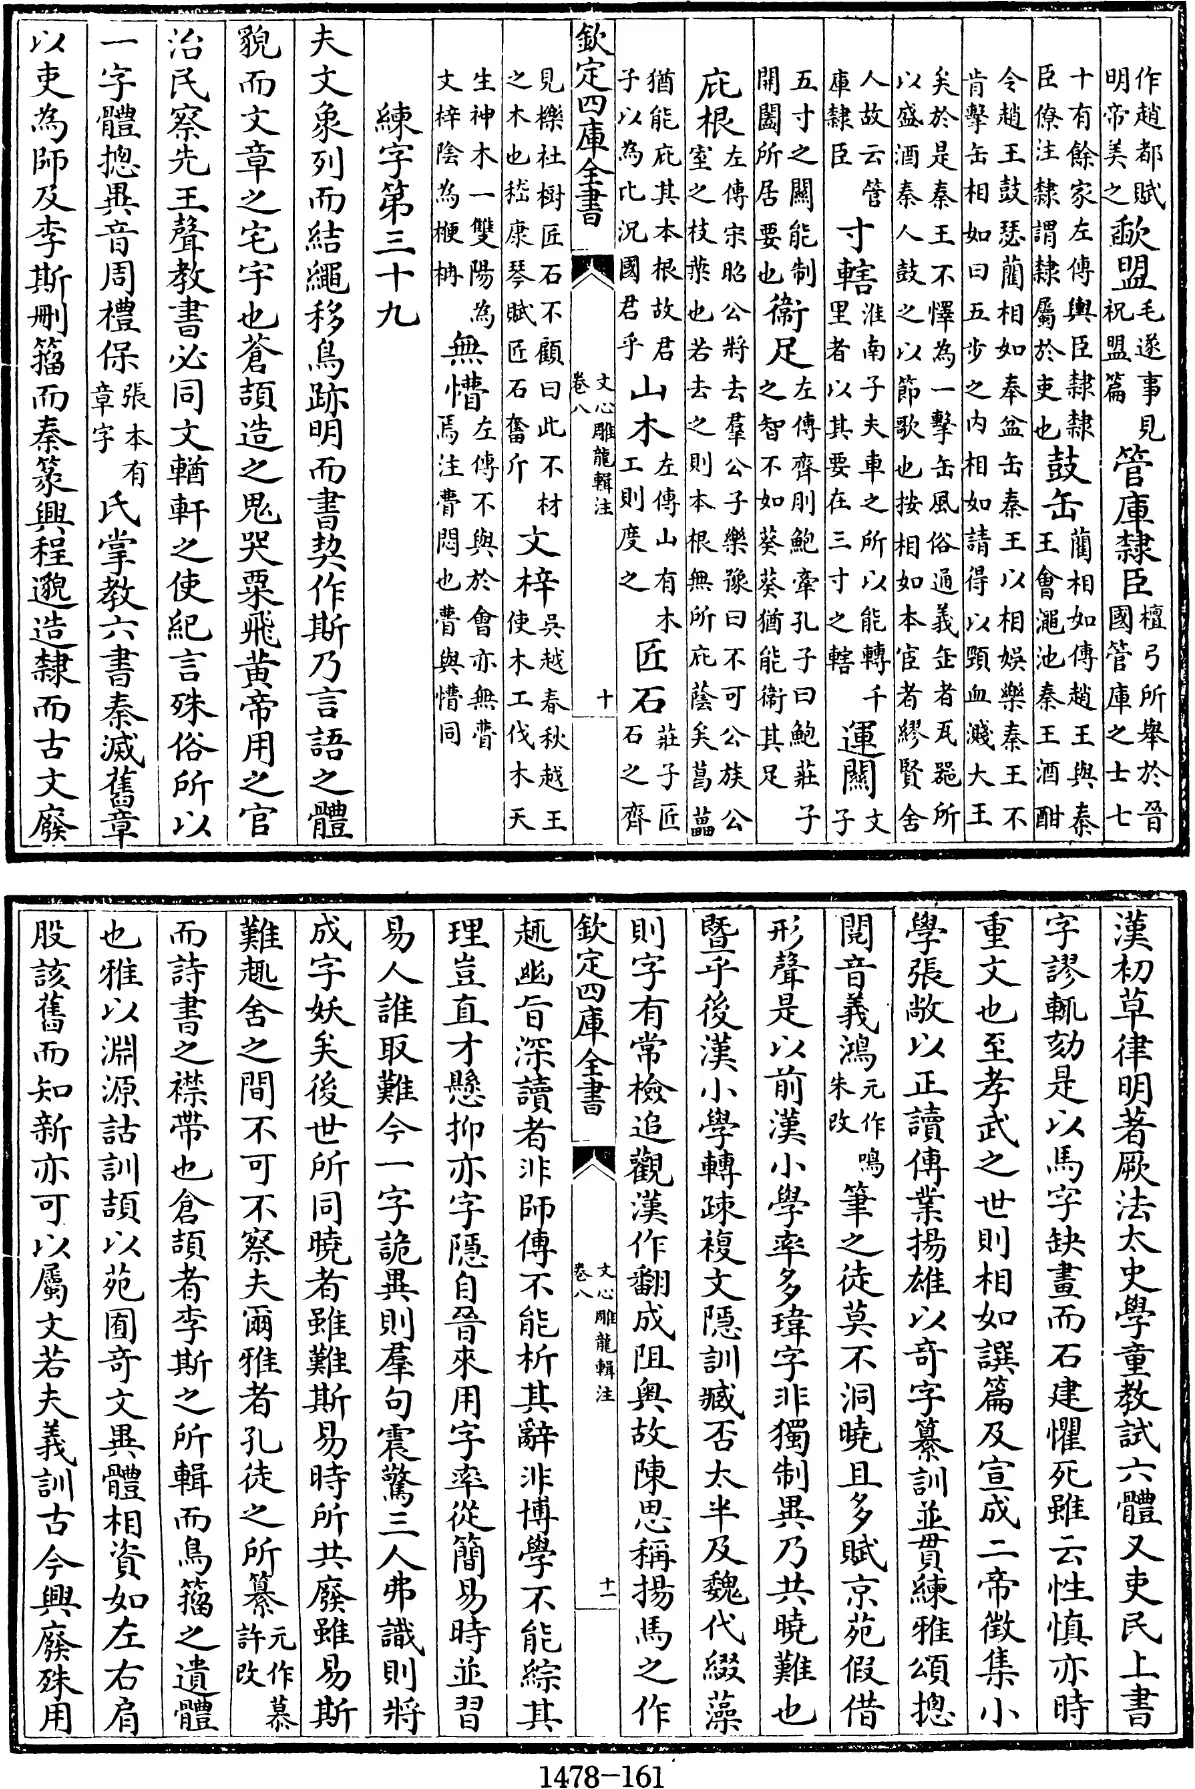 作趙都賦明帝美之歃盟毛遂事見祝盟篇管庫隸臣檀弓所舉於晉國管庫之士七
十有餘家左傳輿臣隸隸臣僚注隸謂隸屬於吏也鼓缶藺相如傳趙王與秦王會澠池秦王酒酣
令趙王鼓瑟藺相如奉盆缶秦王以相娛樂秦王不肯擊缶相如曰五步之内相如請得以頸血濺大王
矣於是秦王不懌為一擊缶風俗通義缶者瓦噐所以盛酒秦人鼓之以節歌也按相如本宦者繆賢舍
人故云管庫隸臣寸轄淮南子夫車之所以能轉千里者以其要在三寸之轄運關文子
五寸之關能制開闔所居要也衛足左傳齊刖鮑牽孔子曰鮑莊子之智不如葵葵猶能衛其足
庇根左傳宋昭公將去羣公子樂豫曰不可公族公室之枝葉也若去之則本根無所庇蔭矣葛藟
猶能庇其本根故君子以為比況國君乎山木左傳山有木工則度之匠石莊子匠石之齊
欽定四庫全書 文心雕龍輯注 卷八 十
見櫟社樹匠石不顧曰此不材之木也嵇康琴賦匠石奮斤文梓吳越春秋越王使木工伐木天
生神木一雙陽為文梓陰為楩柟無懵左傳不與於會亦無瞢焉注瞢悶也瞢與懵同
練字第三十九
夫文象列而結繩移鳥跡明而書契作斯乃言語之體
貌而文章之宅宇也蒼頡造之鬼哭粟飛黃帝用之官
治民察先王聲教書必同文輶軒之使紀言殊俗所以
一字體摠異音周禮保張本有章字氏掌教六書秦滅舊章
以吏為師及李斯刪籀而秦篆興程邈造隸而古文廢
漢初草律明著厥法太史學童教試六體又吏民上書
字謬輒劾是以馬字缺畫而石建懼死雖云性慎亦時
重文也至孝武之世則相如譔篇及宣成二帝徵集小
學張敞以正讀傳業揚雄以奇字纂訓並貫練雅頌摠
閱音義鴻元作鳴朱改筆之徒莫不洞曉且多賦京苑假借
形聲是以前漢小學率多瑋字非獨制異乃共曉難也
暨乎後漢小學轉疎複文隱訓臧否太半及魏代綴藻
則字有常檢追觀漢作翻成阻奥故陳思稱揚馬之作
欽定四庫全書 文心雕龍輯注 卷八 十一
趣幽旨深讀者非師傳不能析其辭非博學不能綜其
理豈直才懸抑亦字隱自晉來用字率從簡易時並習
易人誰取難今一字詭異則羣句震驚三人弗識則將
成字妖矣後世所同曉者雖難斯易時所共廢雖易斯
難趣舍之間不可不察夫爾雅者孔徒之所纂元作慕許改
而詩書之襟帶也倉頡者李斯之所輯而鳥籀之遺體
也雅以淵源詁訓頡以苑囿奇文異體相資如左右肩
股該舊而知新亦可以屬文若夫義訓古今興廢殊用
1478—161